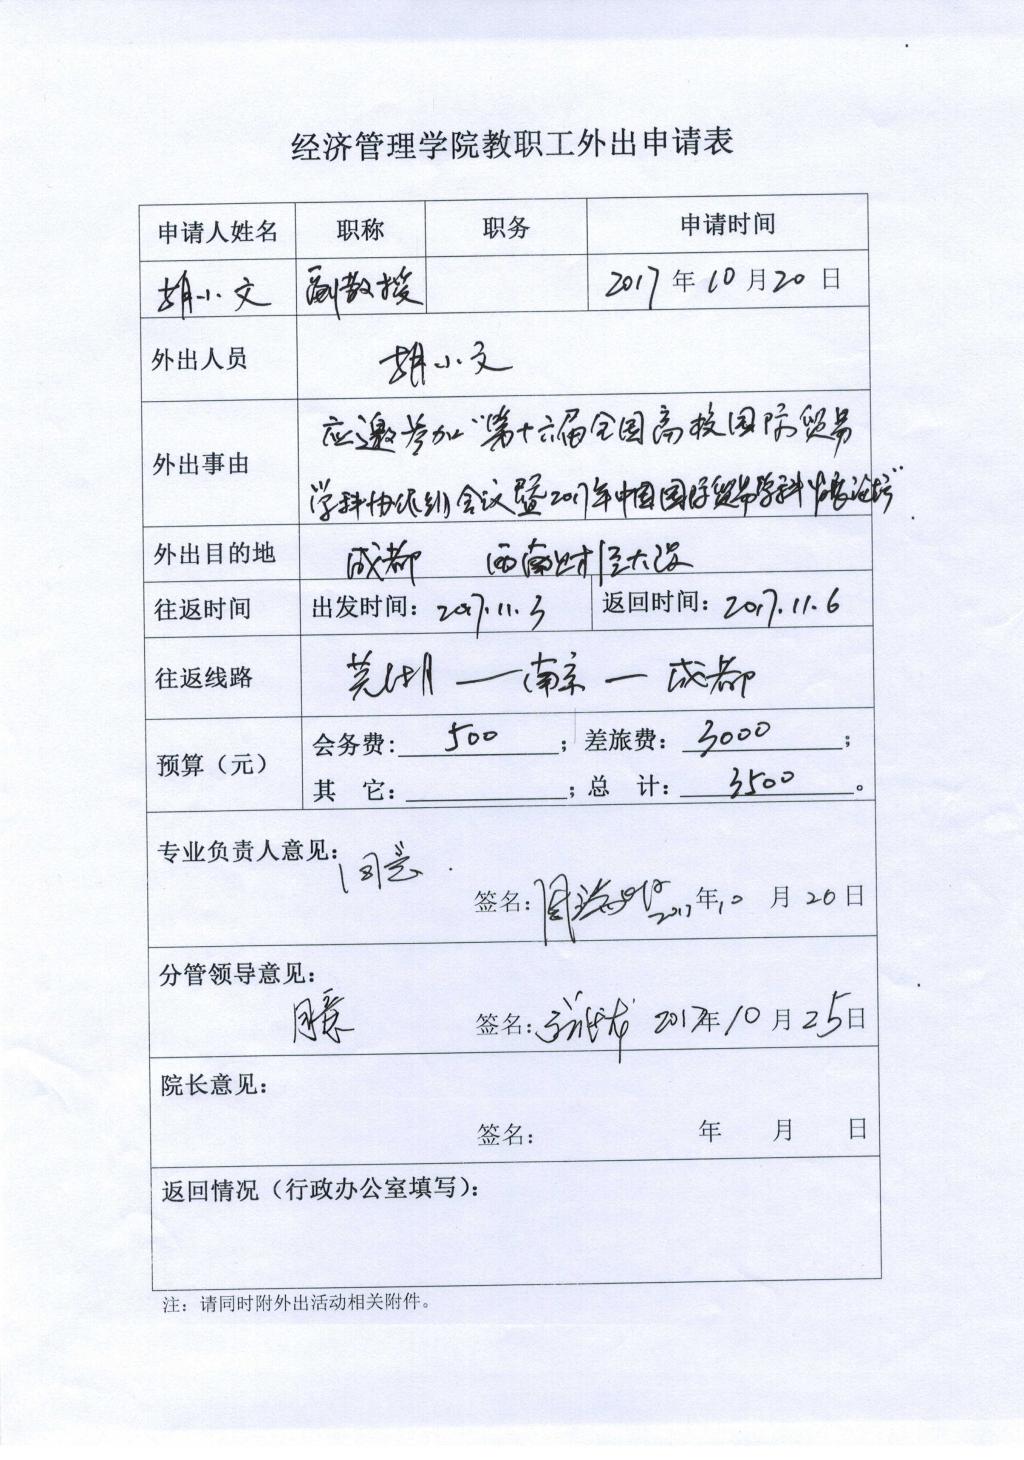 经济管理学院教职工外出申请表
申请人姓名 职称 职务 申请时间
胡小文 副教授 2017年10月20日
外出人员 胡小文
外出事由 应邀参加“第十六届全国高校国际贸易
学科协作组会议暨2017年中国国际贸易学科发展论坛”
外出目的地 成都 西南财经大学
往返时间 出发时间：2017.11.3 返回时间：2017.11.6
往返线路 芜湖—南京—成都
预算（元） 会务费：500；差旅费：3000；
其 它： ；总 计：3500。
专业负责人意见：同意
签名： 2017年10月20日
分管领导意见：
同意 签名： 2017年10月25日
院长意见：
签名： 年 月 日
返回情况（行政办公室填写）：
注：请同时附外出活动相关附件。